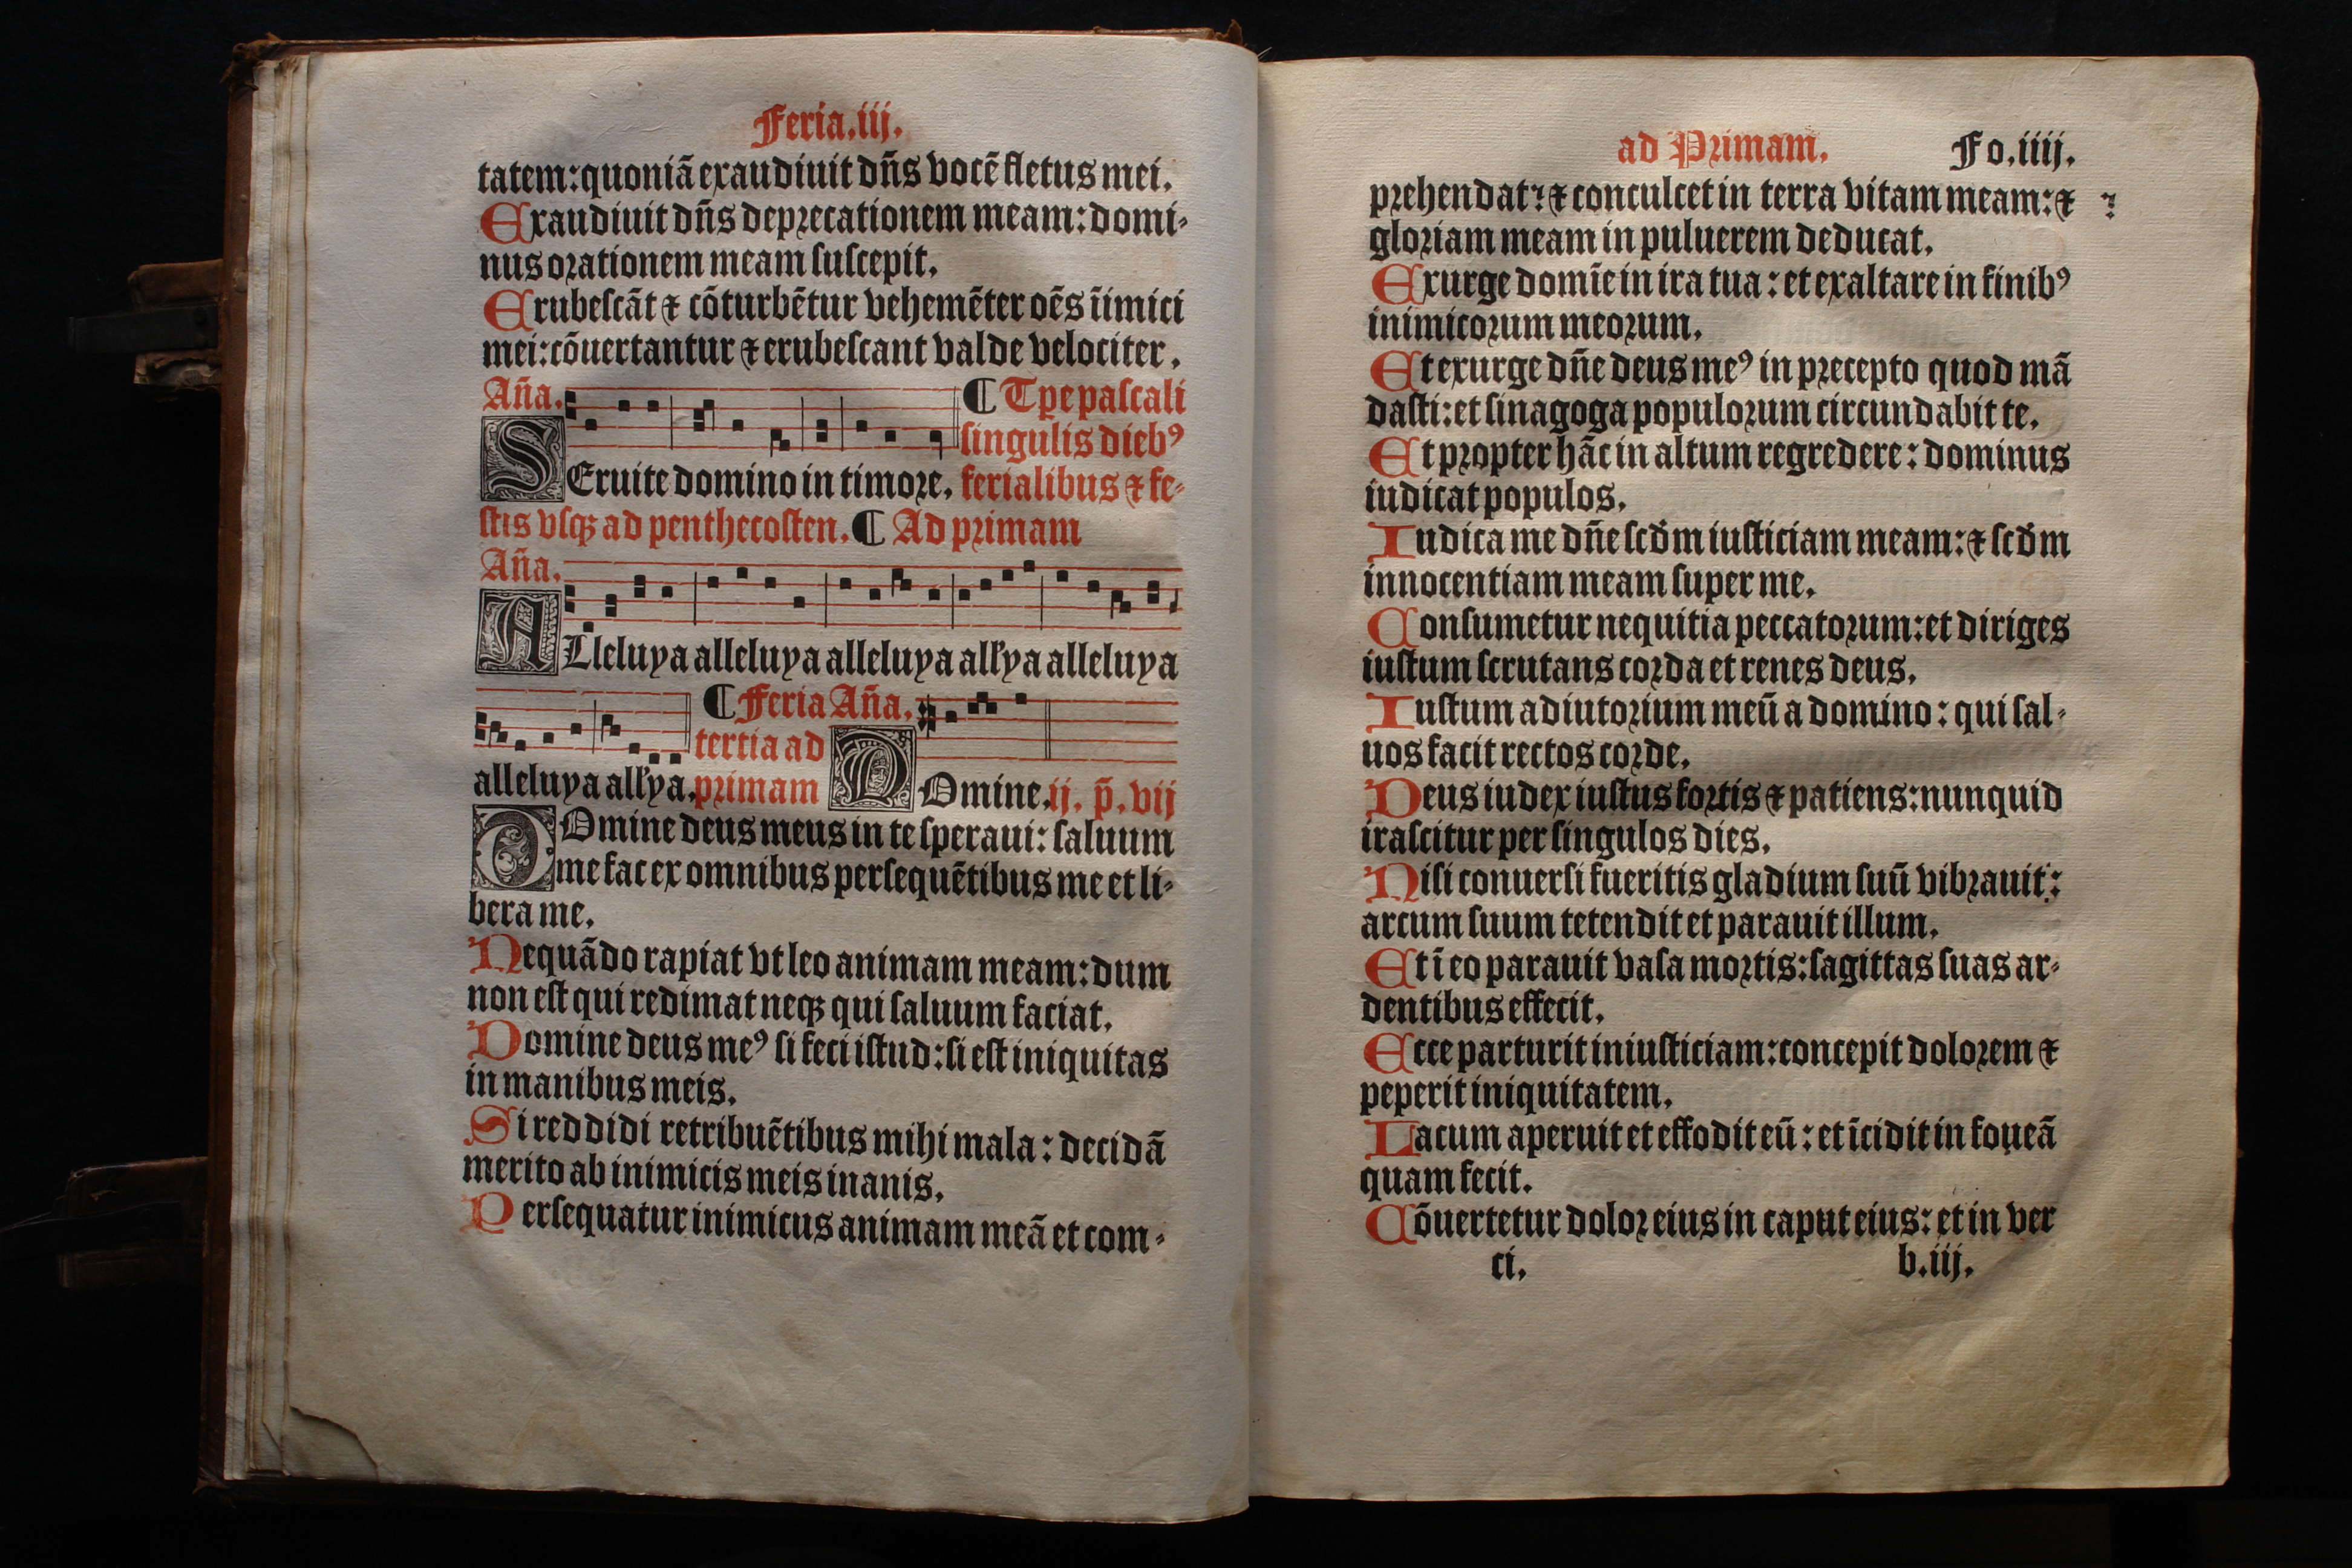 Feria.iij.
tatem:quoniã exaudiuit dñs vocẽ fletus mei.
Exaudiuit dñs deprecationem meam:domi-
nus orationem meam suscepit.
Erubescãt ⁊ cõturbẽtur vehemẽter oẽs iĩmici
mei:cõuertantur ⁊ erubescant valde velociter.
Aña. ¶ Tꝑe pascali
singulis diebꝰ
SEruite domino in timore. ferialibus ⁊ fe-
stis vsqꝫ ad penthecosten. ¶ Ad primam
Aña.
ALleluya alleluya alleluya all'ya alleluya
¶ Feria Aña.
tertia ad
alleluya all'ya. primam DOmine.ij. p̃. vij
DOmine deus meus in te speraui: saluum
me fac ex omnibus persequẽtibus me et li-
bera me.
Nequãdo rapiat vt leo animam meam:dum
non est qui redimat neqꝫ qui saluum faciat.
Domine deus meꝰ si feci istud:si est iniquitas
in manibus meis.
Si reddidi retribuẽtibus mihi mala: decidã
merito ab inimicis meis inanis.
Persequatur inimicus animam meã et com-
ad Primam. Fo.iiij.
prehendat: ⁊ conculcet in terra vitam meam:⁊
gloriam meam in puluerem deducat.
Exurge domĩe in ira tua: et exaltare in finibꝰ
inimicorum meorum.
Et exurge dñe deus meꝰ in precepto quod mã
dasti:et sinagoga populorum circundabit te.
Et propter hãc in altum regredere: dominus
iudicat populos.
Iudica me dñe scd̃m iusticiam meam:⁊ scd̃m
innocentiam meam super me.
Consumetur nequitia peccatorum:et diriges
iustum scrutans corda et renes deus.
Iustum adiutorium meũ a domino: qui sal-
uos facit rectos corde.
Deus iudex iustus fortis ⁊ patiens:nunquid
irascitur per singulos dies.
Nisi conuersi fueritis gladium suũ vibrauit:
arcum suum tetendit et parauit illum.
Et ĩ eo parauit vasa mortis:sagittas suas ar-
dentibus effecit.
Ecce parturit iniusticiam:concepit dolorem ⁊
peperit iniquitatem.
Lacum aperuit et effodit eũ: et ĩcidit in foueã
quam fecit.
Cõuertetur dolor eius in caput eius: et in ver
ci. b.iij.